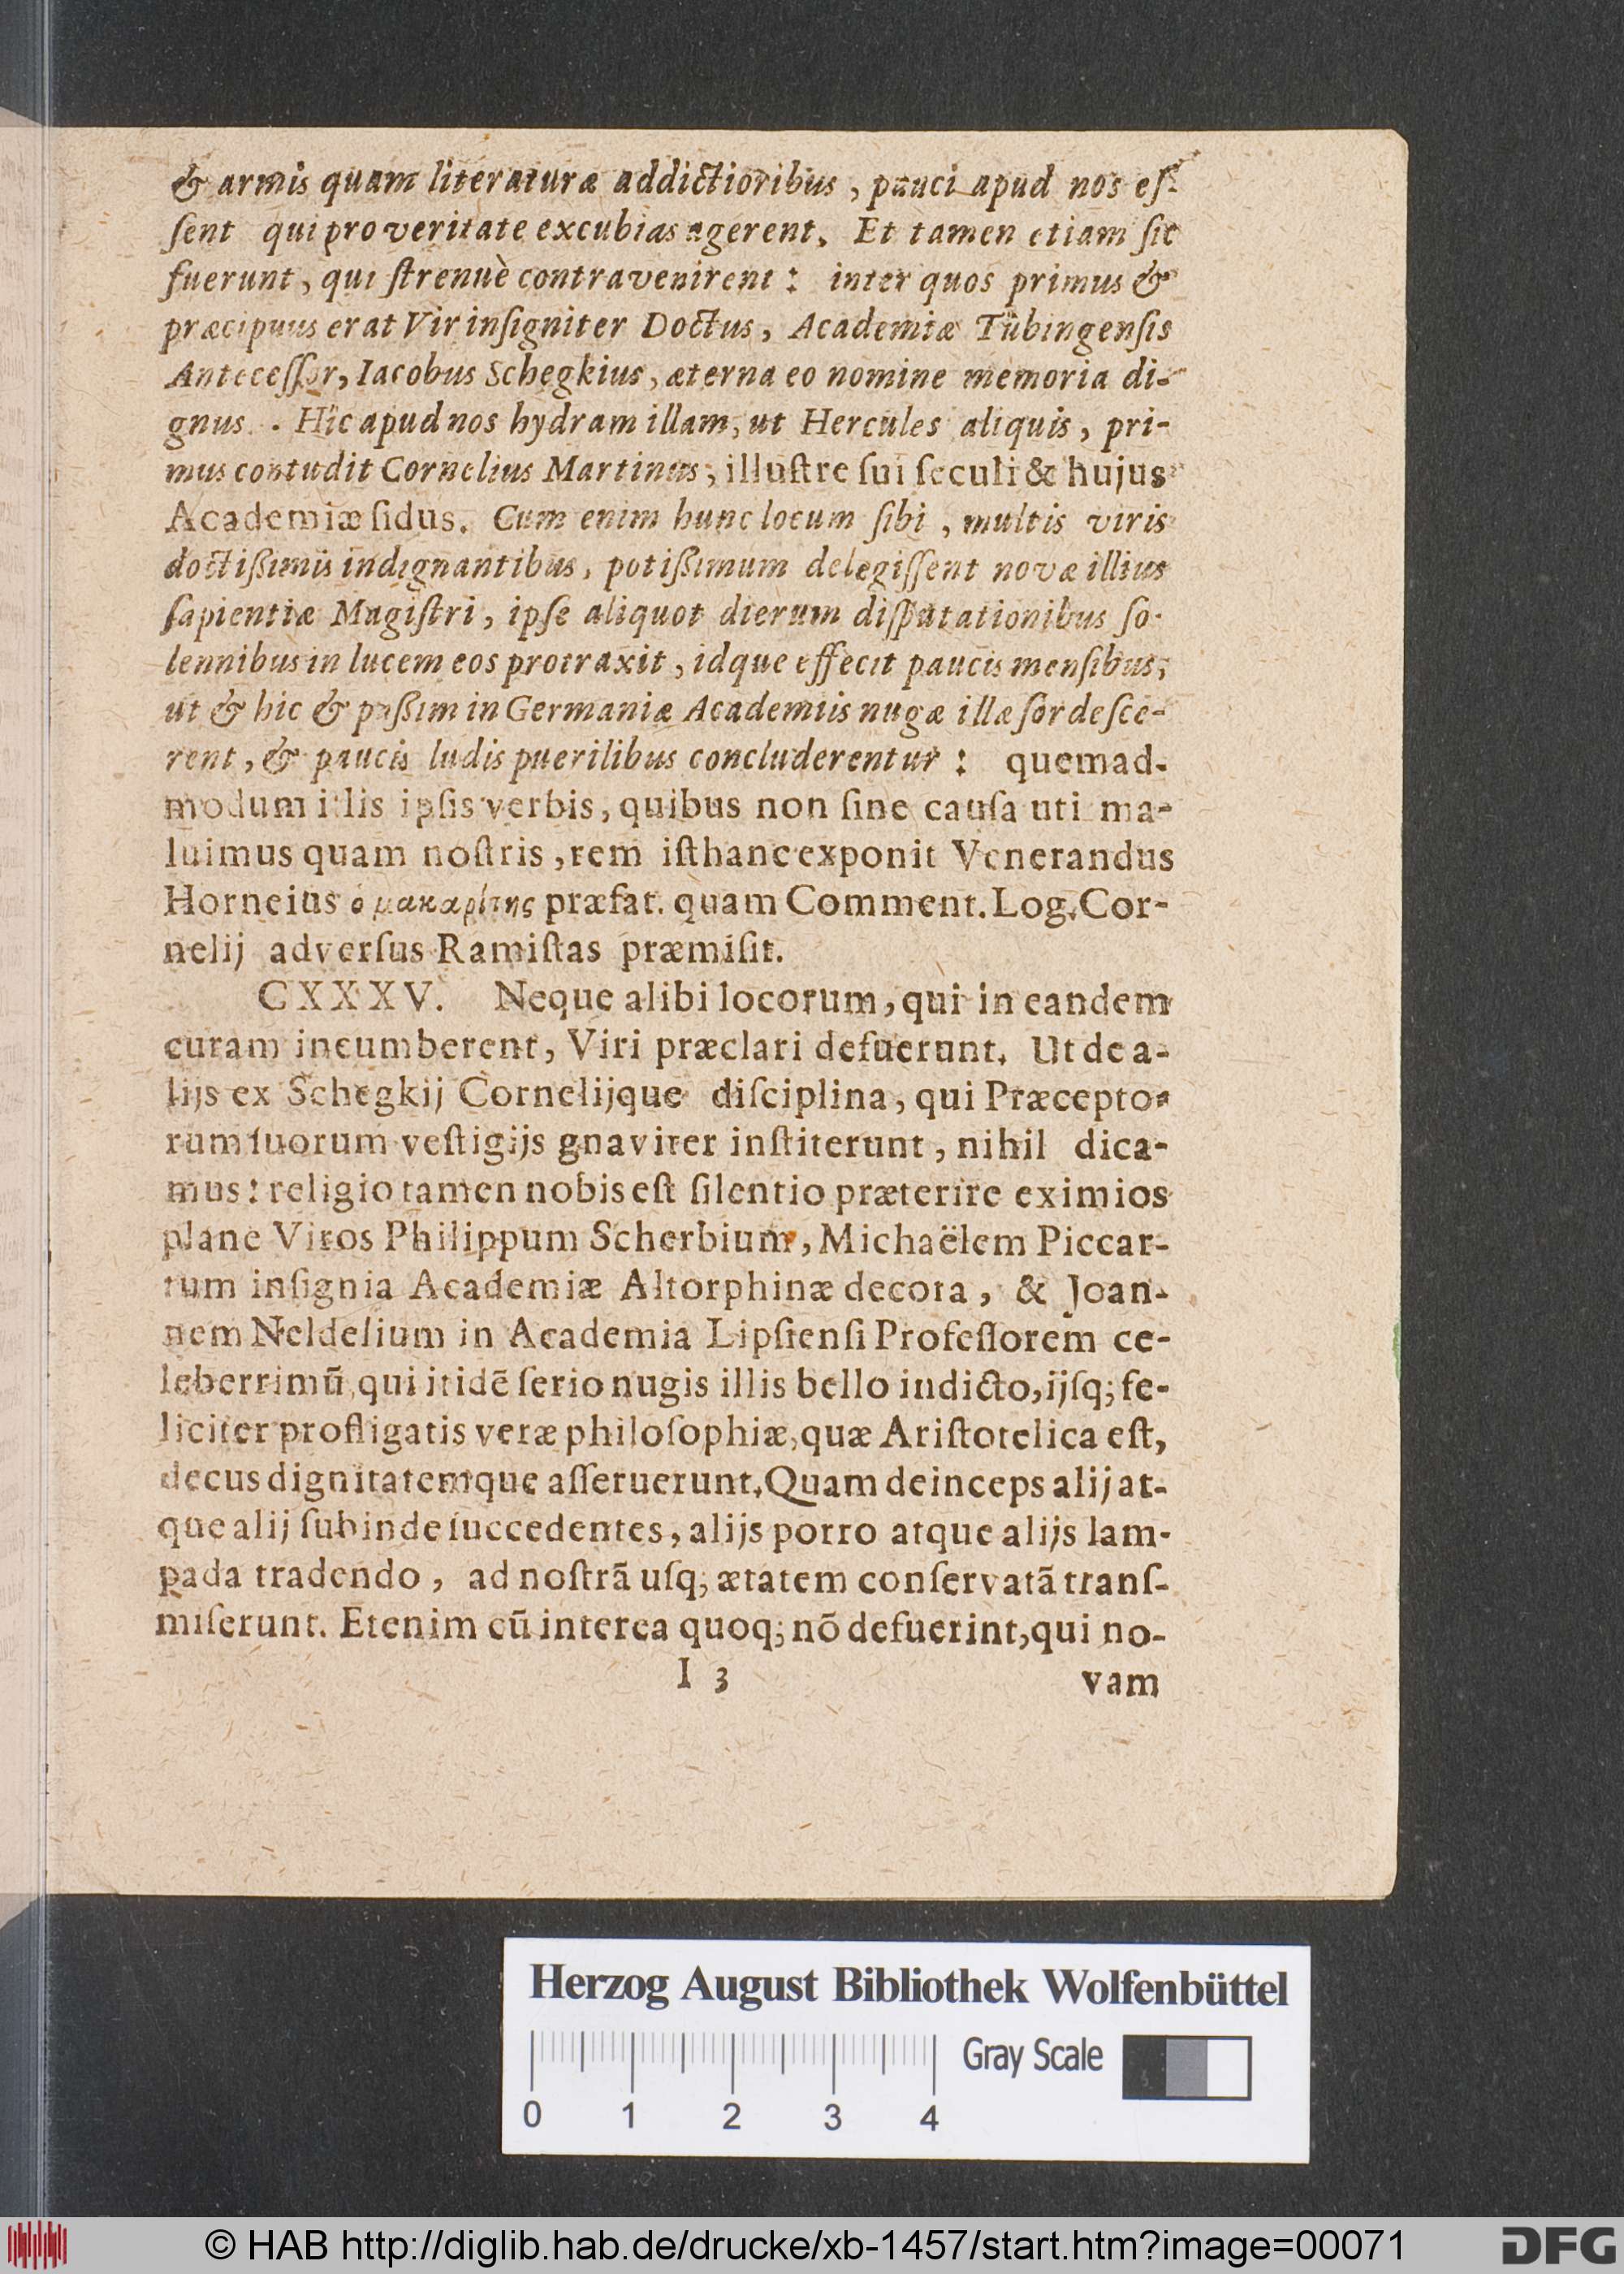 & armis quam literaturæ addictioribus, pauci apud nos eſ-
ſent qui pro veritate excubias agerent. Et tamen etiam ſic
fuerunt, qui ſtrenuè contravenirent: inter quos primus &
præcipuus erat Vir inſigniter Doctus, Academiæ Tübingenſis
Anteceſſor, Iacobus Schegkius, æterna eo nomine memoria di-
gnus. Hic apud nos hydram illam, ut Hercules aliquis, pri-
mus contudit Cornelius Martinus, illuſtre ſui ſeculi & hujus
Academiæ ſidus. Cum enim hunc locum ſibi, multis viris
doctißimis indignantibus, potißimum delegiſſent novæ illius
ſapientiæ Magiſtri, ipſe aliquot dierum diſputationibus ſo-
lennibus in lucem eos protraxit, idque effecit paucis menſibus,
ut & hic & paßim in Germaniæ Academiis nugæ illæ ſordeſce-
rent, & paucis ludis puerilibus concluderentur: quemad-
modum illis ipſis verbis, quibus non ſine cauſa uti ma-
luimus quam noſtris, rem iſthanc exponit Venerandus
Horneius ὁ μακαρίτης præfat. quam Comment. Log. Cor-
nelij adverſus Ramiſtas præmiſit.
CXXXV. Neque alibi locorum, qui in eandem
curam incumberent, Viri præclari defuerunt. Ut de a-
lijs ex Schegkij Cornelijque diſciplina, qui Præcepto-
rum ſuorum veſtigijs gnaviter inſtiterunt, nihil dica-
mus: religio tamen nobis eſt ſilentio præterire eximios
plane Viros Philippum Scherbium, Michaëlem Piccar-
tum inſignia Academiæ Altorphinæ decora, & Joan-
nem Neldelium in Academia Lipſienſi Profeſſorem ce-
leberrimũ, qui itidẽ ſerio nugis illis bello indicto, ijſq; fe-
liciter profligatis veræ philoſophiæ, quæ Ariſtotelica eſt,
decus dignitatemque aſſeruerunt. Quam deinceps alij at-
que alij ſubinde ſuccedentes, alijs porro atque alijs lam-
pada tradendo, ad noſtrã uſq; ætatem conſervatã tranſ-
miſerunt. Etenim cũ interea quoq; nõ defuerint, qui no-
I 3 vam
Herzog August Bibliothek Wolfenbüttel
Gray Scale
0 1 2 3 4
© HAB http://diglib.hab.de/drucke/xb-1457/start.htm?image=00071
DFG